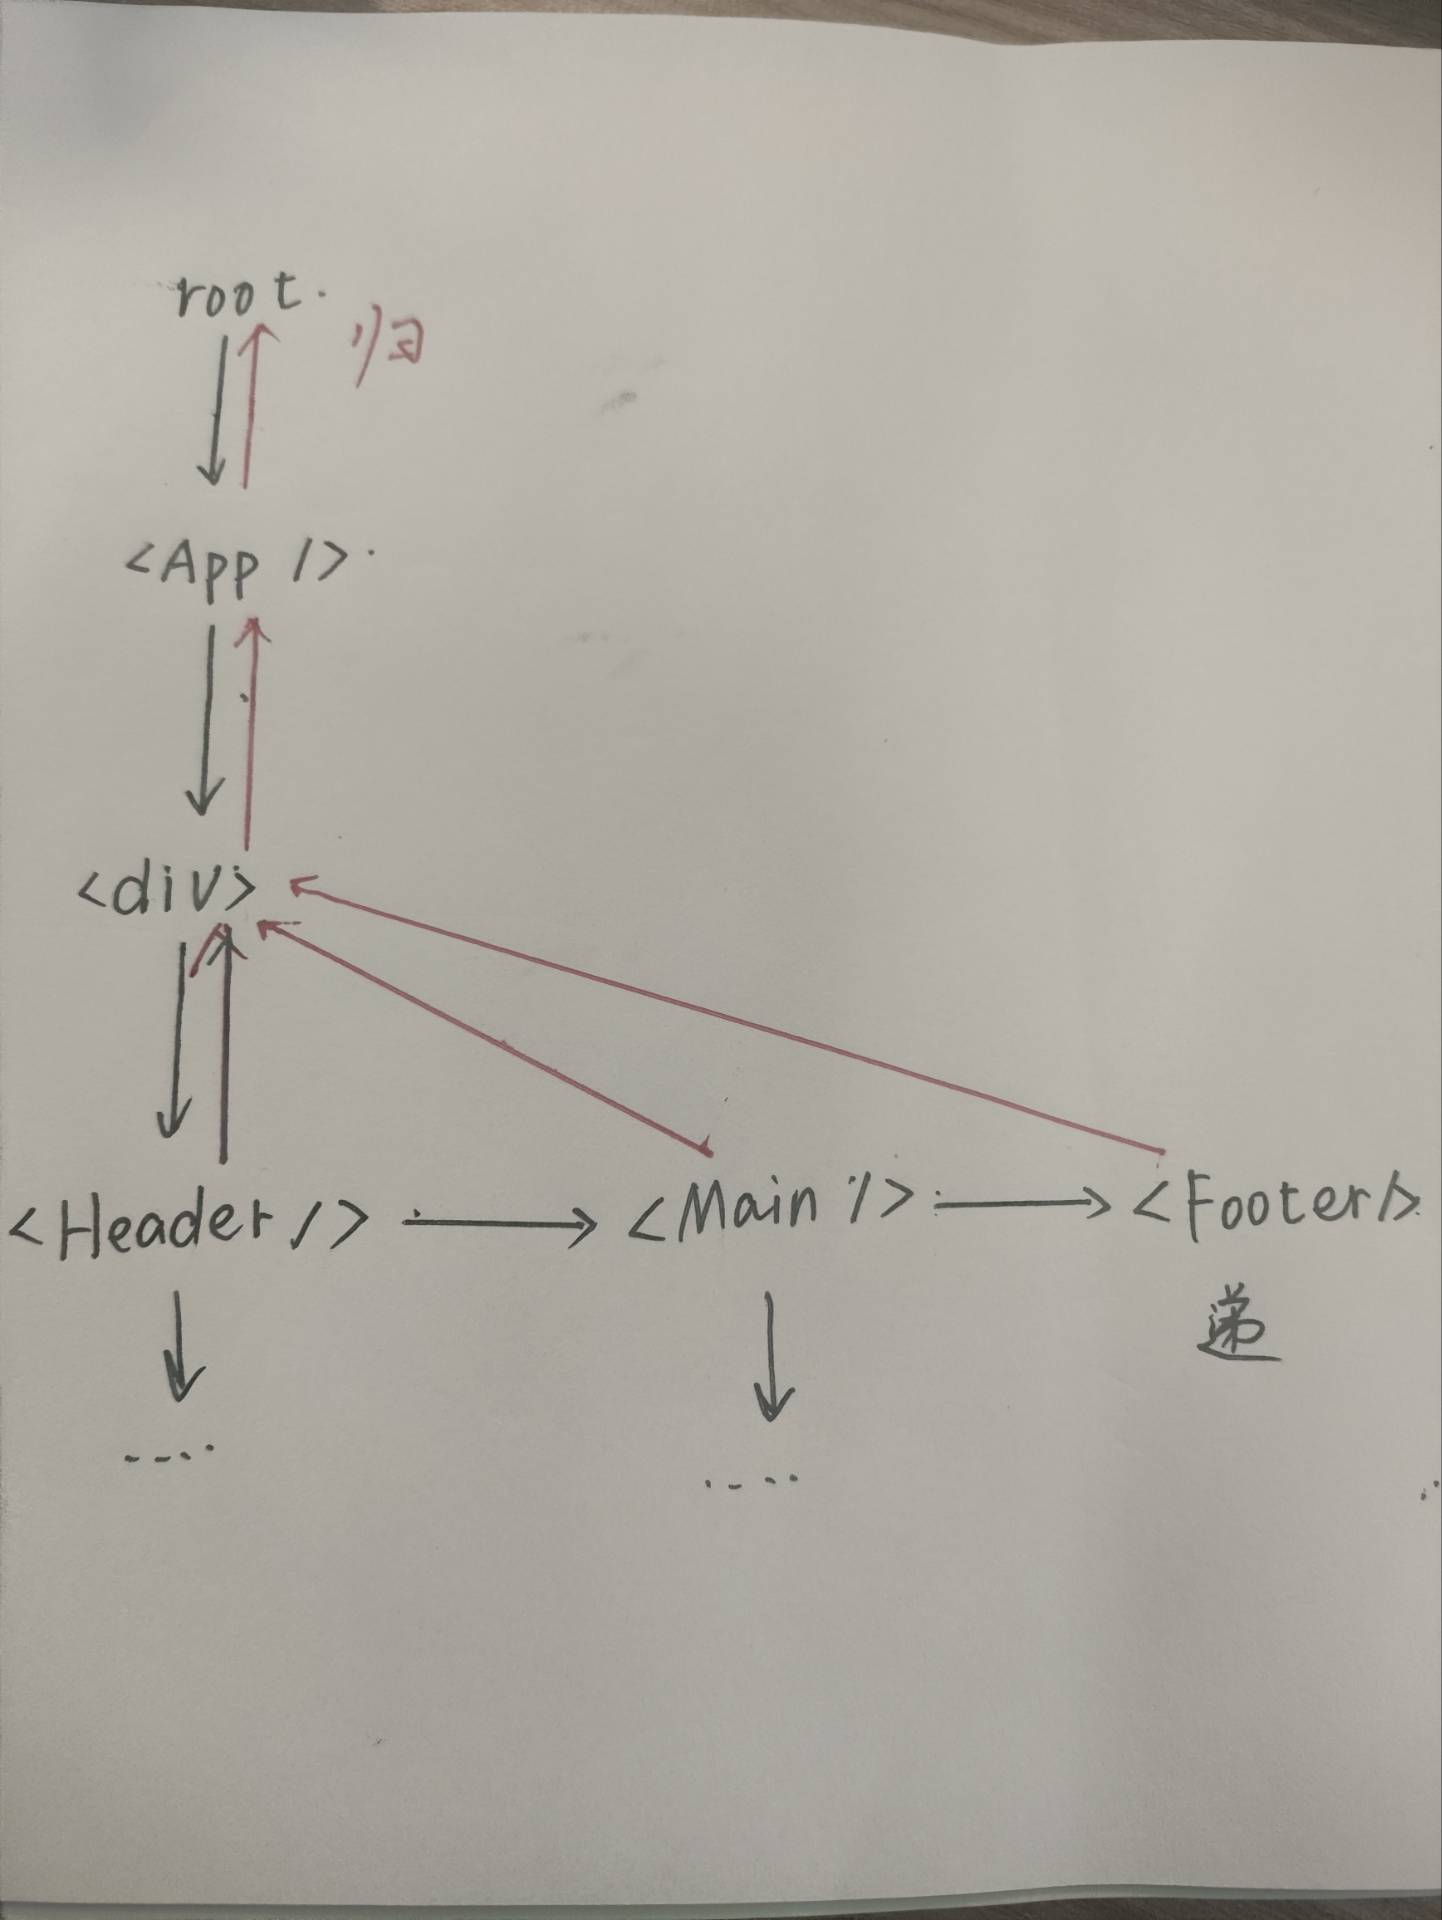 root.
归
<App />
<div>
<Header /> <Main /> <Footer/>
递
....
....